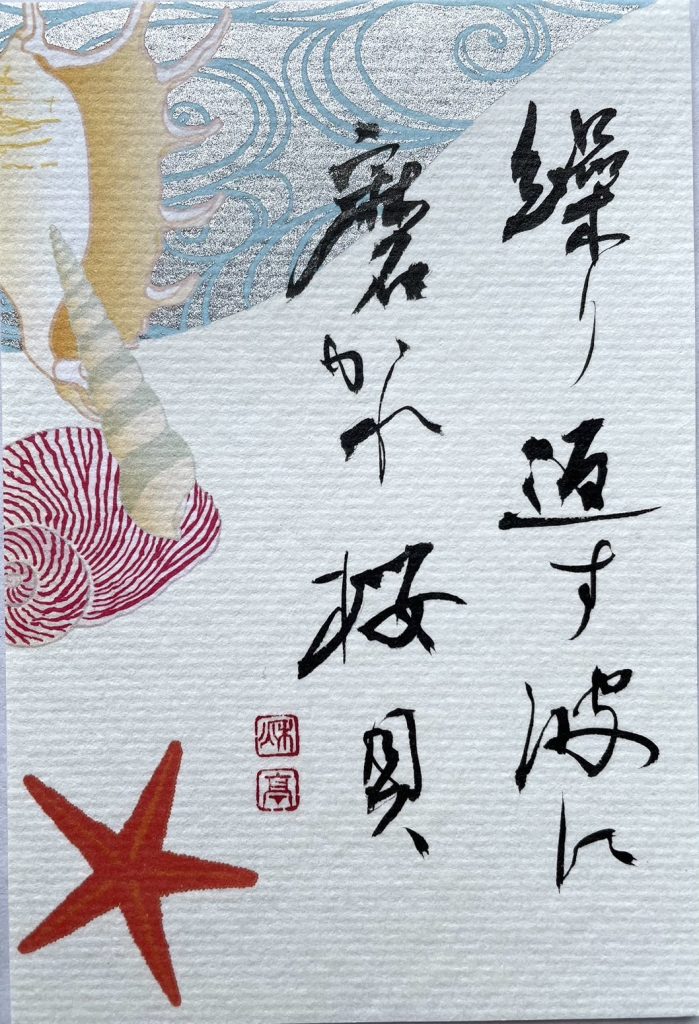 繰り返す波に
磨かれ桜貝